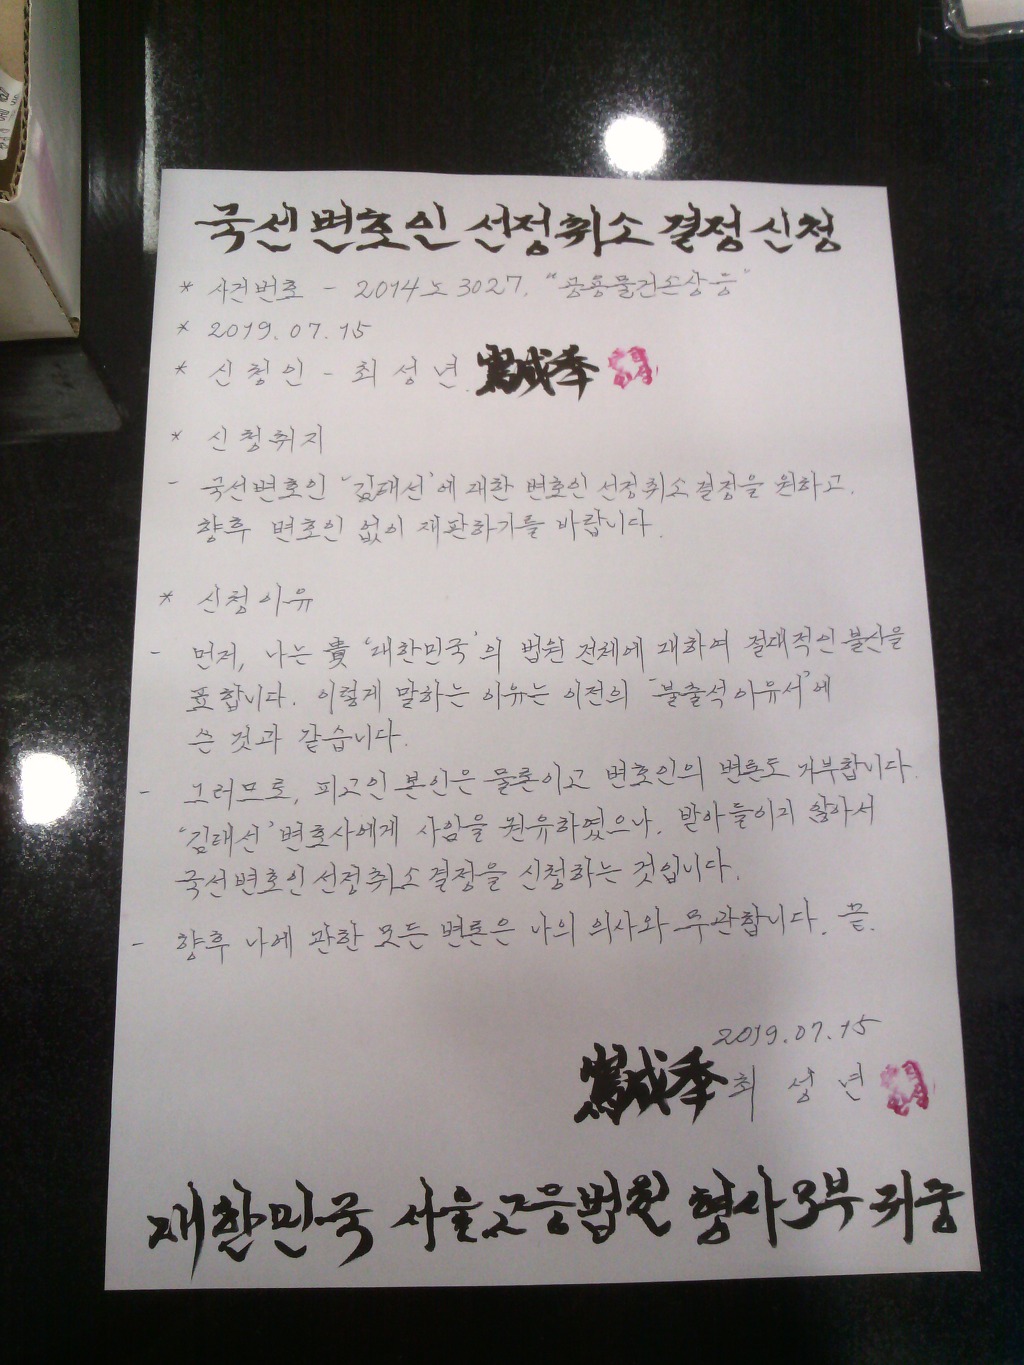 국선변호인 선정취소 결정신청
* 사건번호 - 2014노3027, "공용물건손상 등"
* 2019.07.15
* 신청인 - 최성년
* 신청취지
- 국선변호인 '김태선'에 대한 변호인 선정취소결정을 원하고,
향후 변호인 없이 재판하기를 바랍니다.
* 신청이유
- 먼저, 나는 貴 '대한민국'의 법원 전체에 대하여 절대적인 불신을
표합니다. 이렇게 말하는 이유는 이전의 "불출석이유서"에
쓴 것과 같습니다.
- 그러므로, 피고인 본인은 물론이고 변호인의 변론도 거부합니다.
'김태선' 변호사에게 사임을 권유하였으나, 받아들이지 않아서
국선변호인 선정취소결정을 신청하는 것입니다.
- 향후 나에 관한 모든 변론은 나의 의사와 무관합니다. 끝.
2019.07.15
최성년
대한민국 서울고등법원 형사3부 귀중